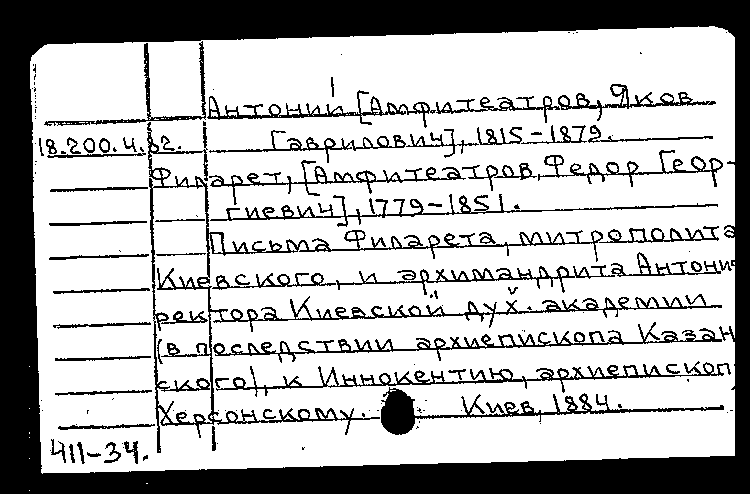 Антоний [Амфитеатров, Яков
18.200.4.82. Гаврилович], 1815-1879.
Филарет, [Амфитеатров, Федор Геор-
гиевич], 1779-1851.
Письма Филарета, митрополита
Киевского, и архимандрита Антони
ректора Киевской дух. академии
(в последствии архиепископа Казан
ского), к Иннокентию, архиепископ
Херсонскому. Киев, 1884.
411-34.